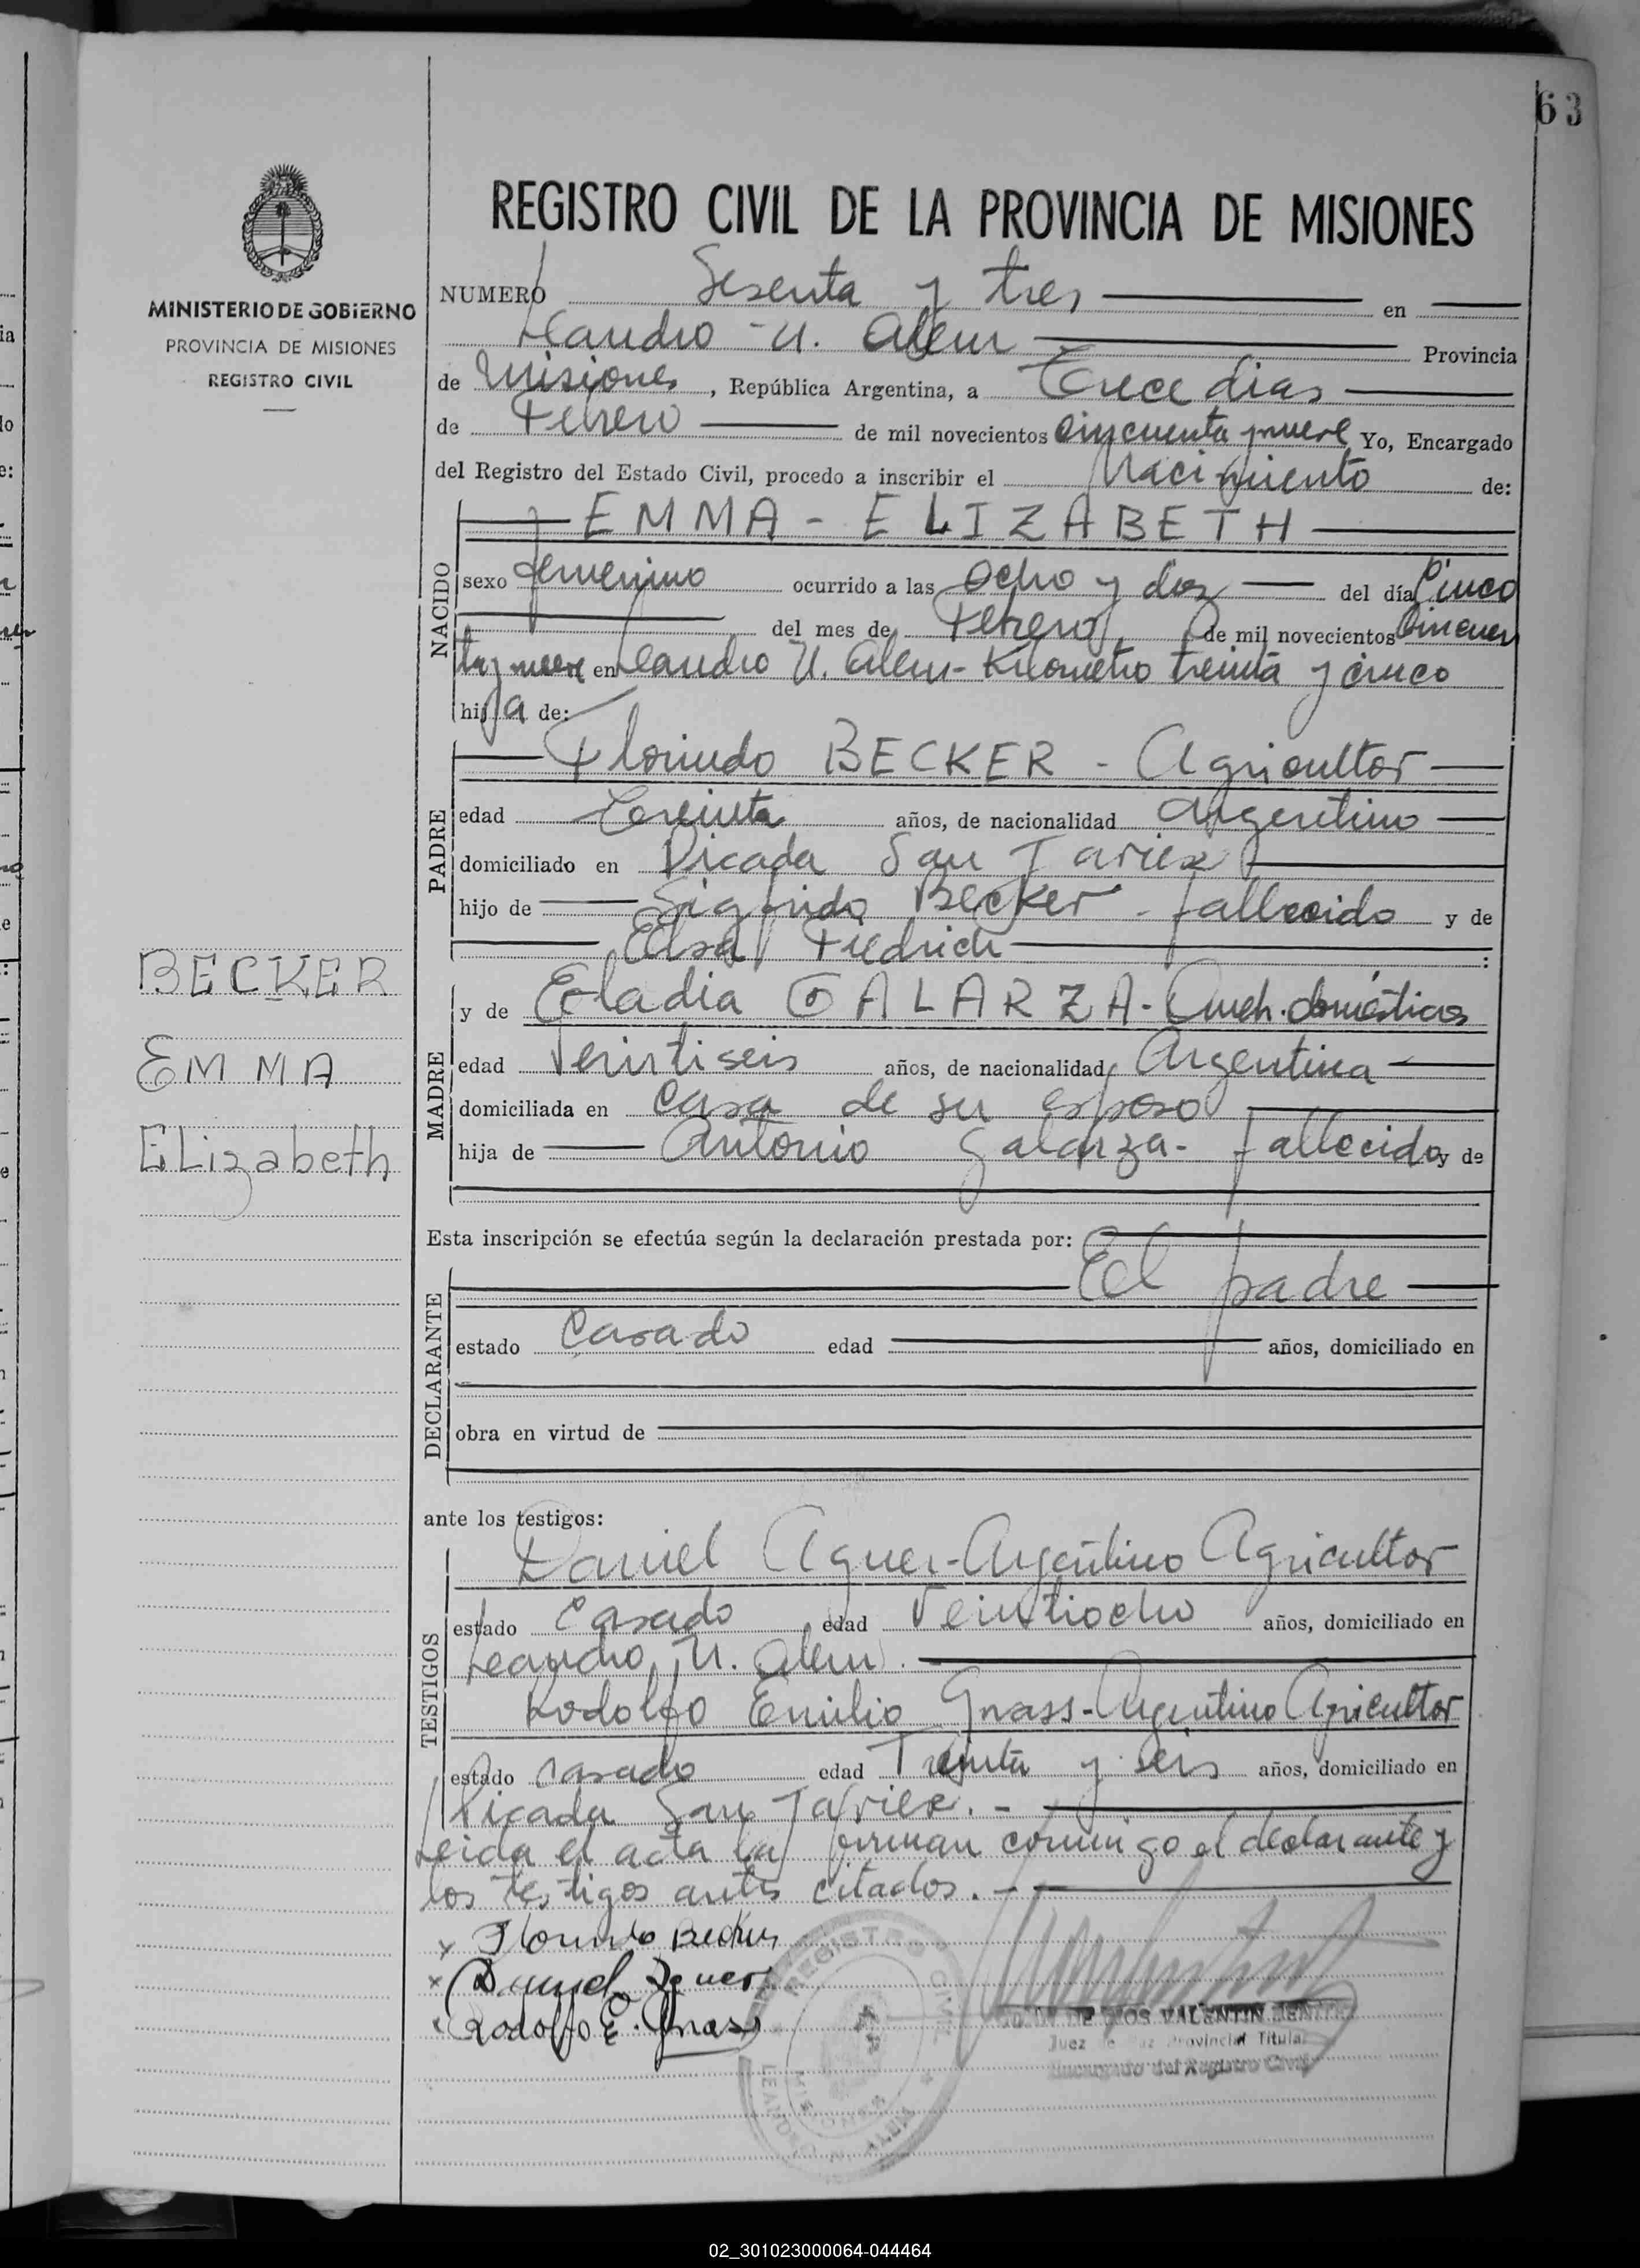 63
REGISTRO CIVIL DE LA PROVINCIA DE MISIONES
MINISTERIO DE GOBIERNO
PROVINCIA DE MISIONES
REGISTRO CIVIL
NUMERO Sesenta y tres en
Leandro N. Alem Provincia
de Misiones, República Argentina, a Trece dias
de Febrero de mil novecientos Cincuenta y nueve Yo, Encargado
del Registro del Estado Civil, procedo a inscribir el Nacimiento de:
NACIDO
EMMA - ELIZABETH
sexo femenino ocurrido a las Ocho y diez del día Cinco
del mes de Febrero, de mil novecientos Cincuen
ta y nueve en Leandro N. Alem - Kilometro treinta y cinco
hija de:
PADRE
Florindo BECKER - Agricultor
edad Treinta años, de nacionalidad Argentino
domiciliado en Picada San Javier
hijo de Sigfrido Becker - fallecido y de
Elsa Fiedrich :
MADRE
y de Eladia GALARZA - Queh. domésticos
edad Veintiseis años, de nacionalidad Argentina
domiciliada en Casa de su esposo
hija de Antonio Galarza - fallecido y de
BECKER
EMMA
Elizabeth
Esta inscripción se efectúa según la declaración prestada por:
El padre
DECLARANTE
estado Casado edad años, domiciliado en
obra en virtud de
ante los testigos:
TESTIGOS
Daniel Aguer - Argentino Agricultor
estado Casado edad Veintiocho años, domiciliado en
Leandro N. Alem.
Rodolfo Emilio Gnass - Argentino Agricultor
estado casado edad Treinta y seis años, domiciliado en
Picada San Javier. -
Leida el acta la firman conmigo el declarante y
los testigos antes citados. -
x Florindo Becker
x Daniel Aguer
x Rodolfo E. Gnass
REGISTRO CIVIL
MISIONES
LEANDRO N. ALEM
DE DIOS VALENTIN
Juez de Paz Provincial Titular
Encargado del Registro Civil
02_301023000064-044464